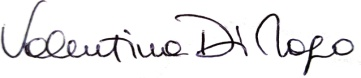 Valentina Di Napo